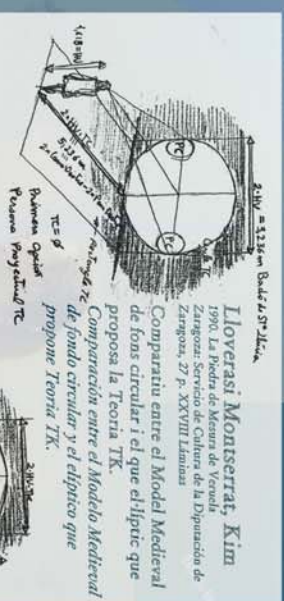 2·HV = 3,236 m
Lloverasi Montserrat, Kim
1990. La Piedra de Mesura de Veruela
Zaragoza: Servicio de Cultura de la Diputación de
Zaragoza, 27 p. XXVIII Láminas
Comparatiu entre el Model Medieval
de fons circular i el que el·líptic que
proposa la Teoria TK.
Comparación entre el Modelo Medieval
de fondo circular y el elíptico que
propone Teoria TK.
PC
PC
TC
1,618=HV
2·HV·TC
3,236 m
TC=φ
Persona Proyectual TC
2·HV·TC